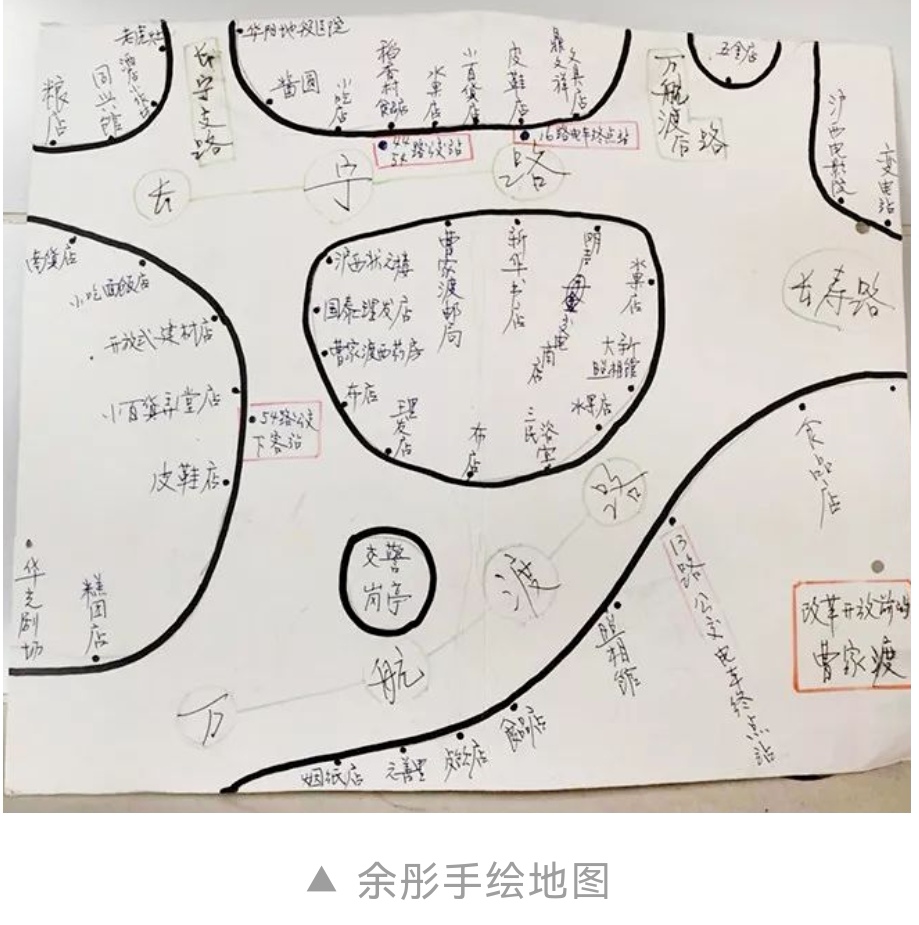 华阳地段医院
五金店
粮店
同兴馆
长宁支路
酱园
小吃店
稻香村食品店
水果店
小百货店
皮鞋店
鼎久祥
文具店
万航渡后路
沪西电影院
变电站
44
54路公交站
16路电车终点站
长宁路
南货店
小吃面饭店
开放式建材店
小百货弄堂店
皮鞋店
54路公交
下客站
华光剧场
糕团店
沪西状元楼
国泰理发店
曹家渡西药房
布店
理发店
曹家渡邮局
新华书店
布店
三民浴室
水果店
大新照相馆
水果店
长寿路
交警
岗亭
万航渡路
食品店
13路公交电车终点站
照相馆
食品店
元善里
烟纸店
改革开放前的
曹家渡
▲ 余彤手绘地图